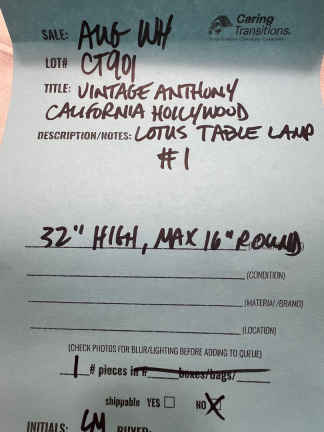 Caring
Transitions.
SALE: AUG WH
LOT# CT901
TITLE: VINTAGE ANTHONY
CALIFORNIA HOLLYWOOD
DESCRIPTION/NOTES: LOTUS TABLE LAMP
#1
32" HIGH, MAX 16" ROUND
(CONDITION)
(MATERIAL/BRAND)
(LOCATION)
(CHECK PHOTOS FOR BLUR/LIGHTING BEFORE ADDING TO QUEUE)
1 # pieces in # boxes/bags/
shippable YES ☐ NO ☒
INITIALS: LM BUYER: